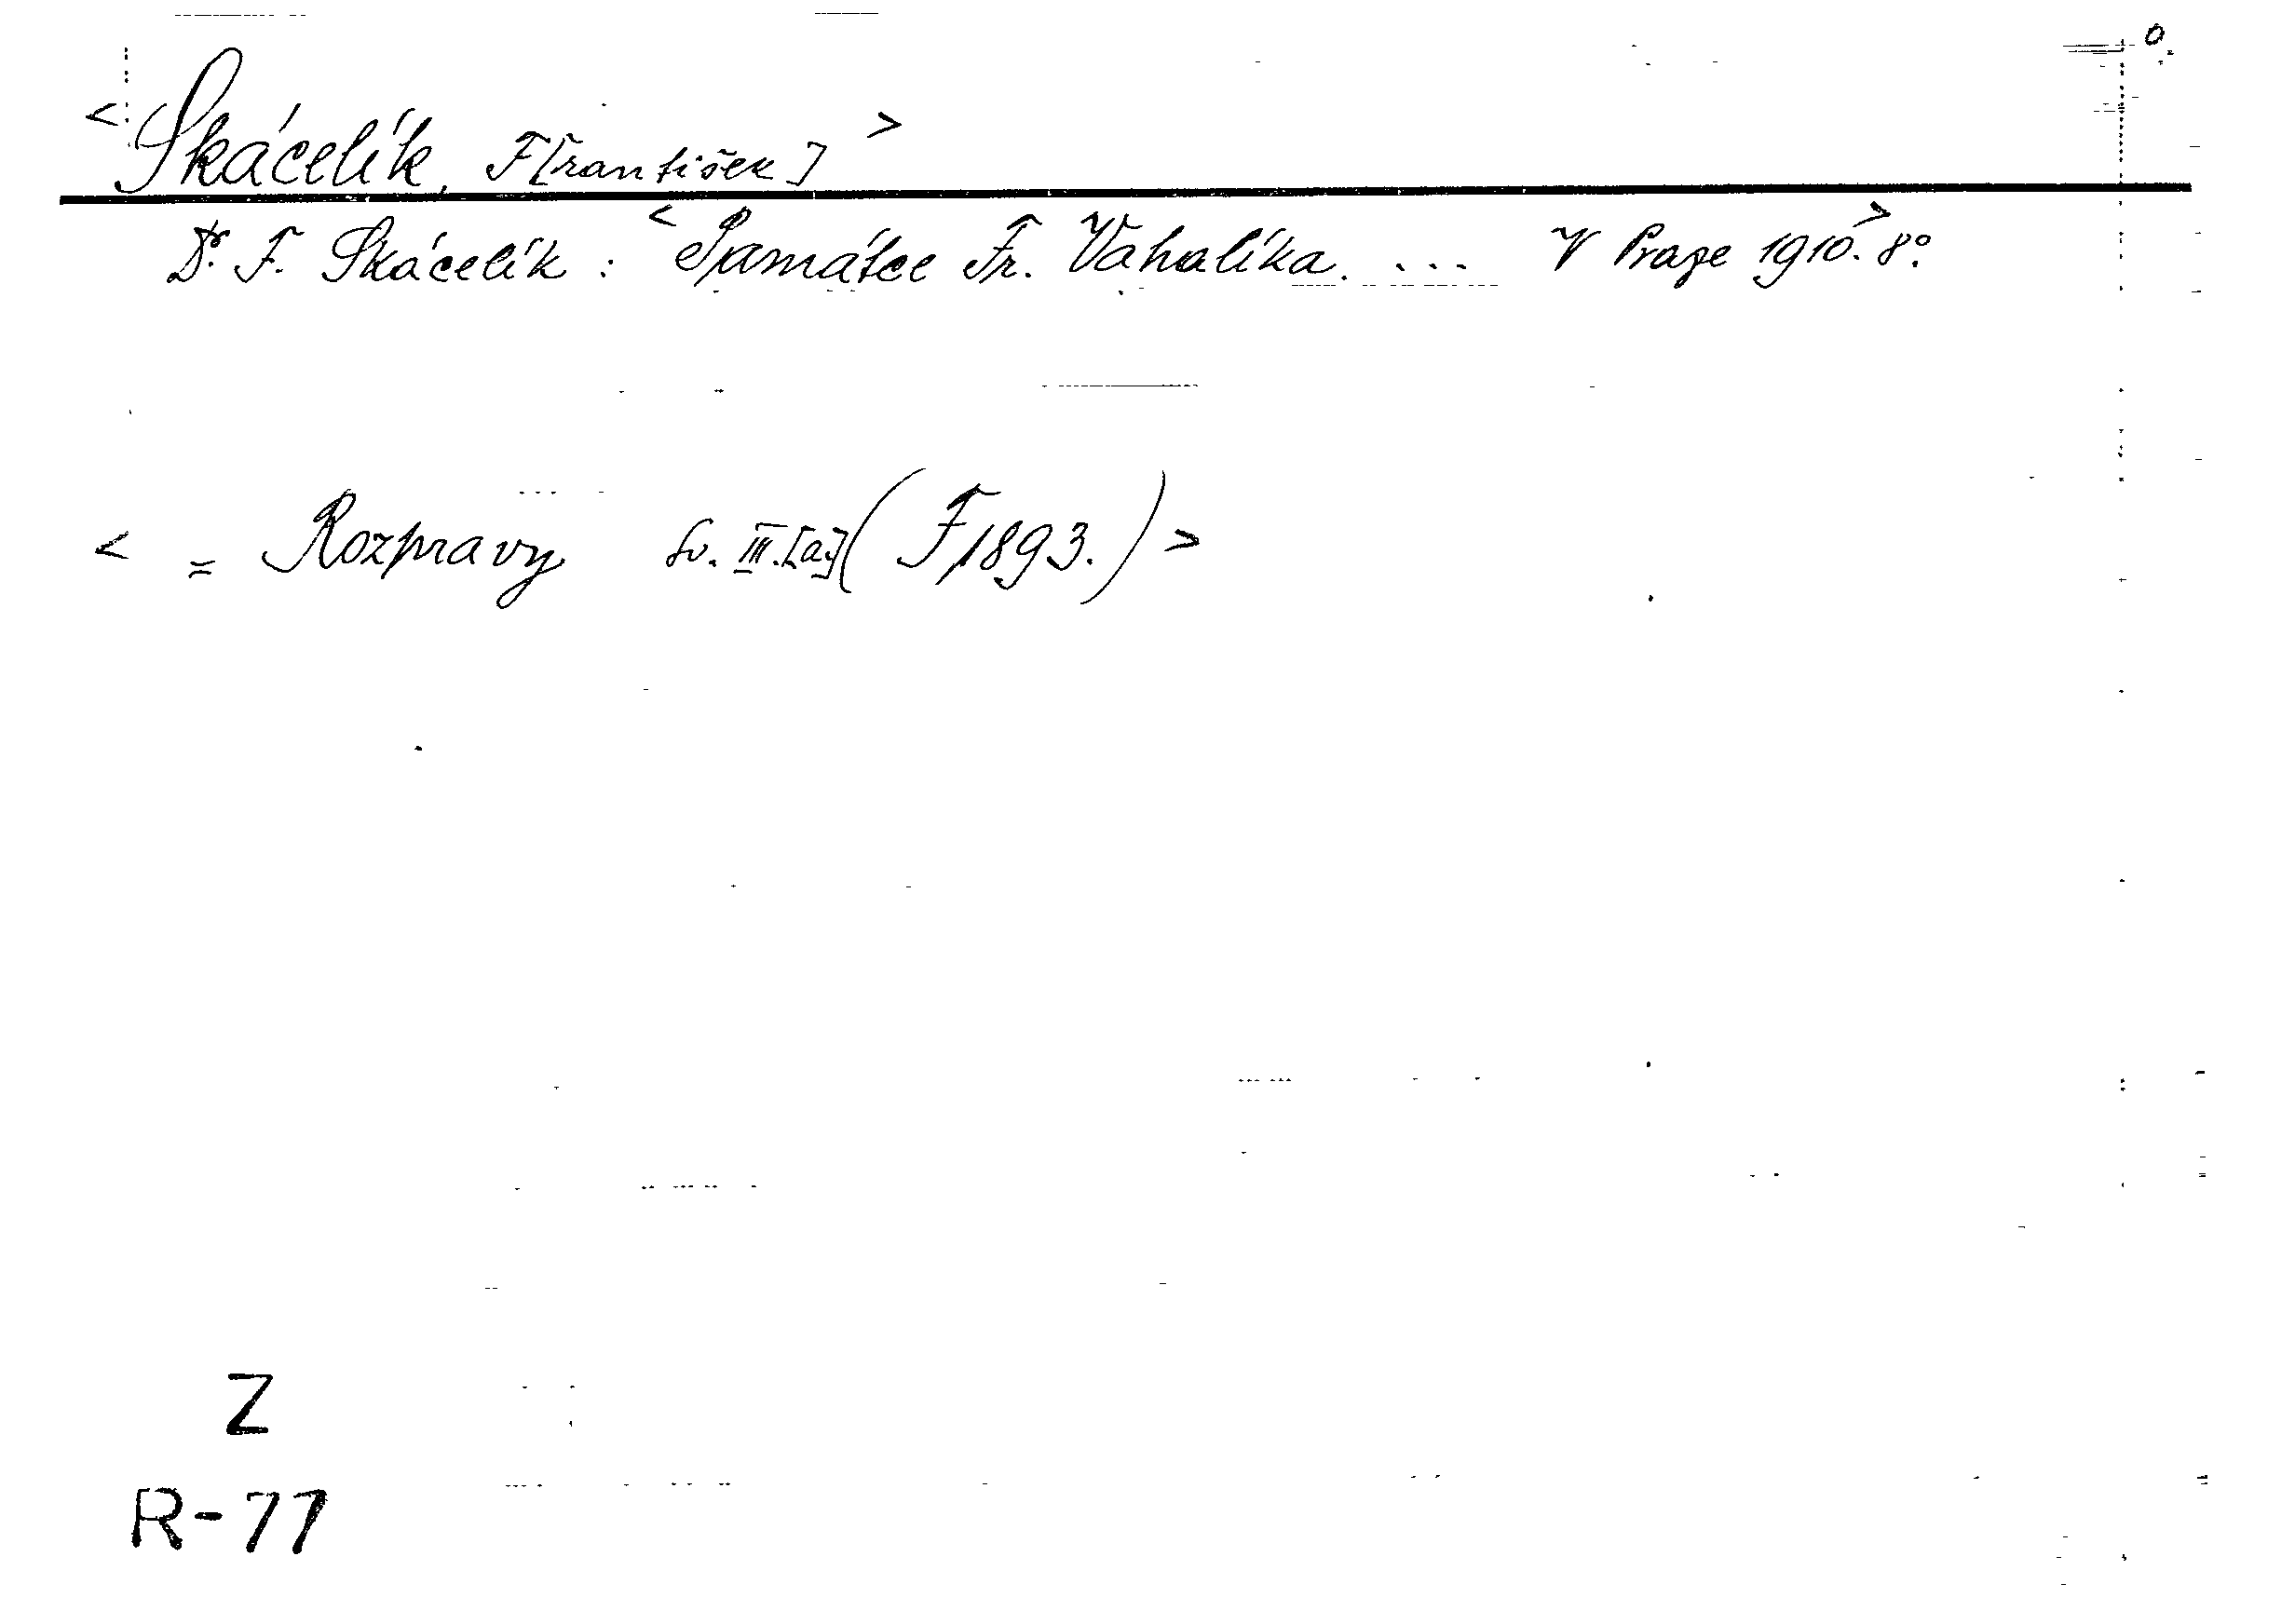 <Skácelík, F[rantišek]>
Dr. F. Skácelík: <Památce Fr. Vahalíka. ... V Praze 1910.> 8º
< = Rozpravy sv. III.[a](F/1893.)>
Z
R-77